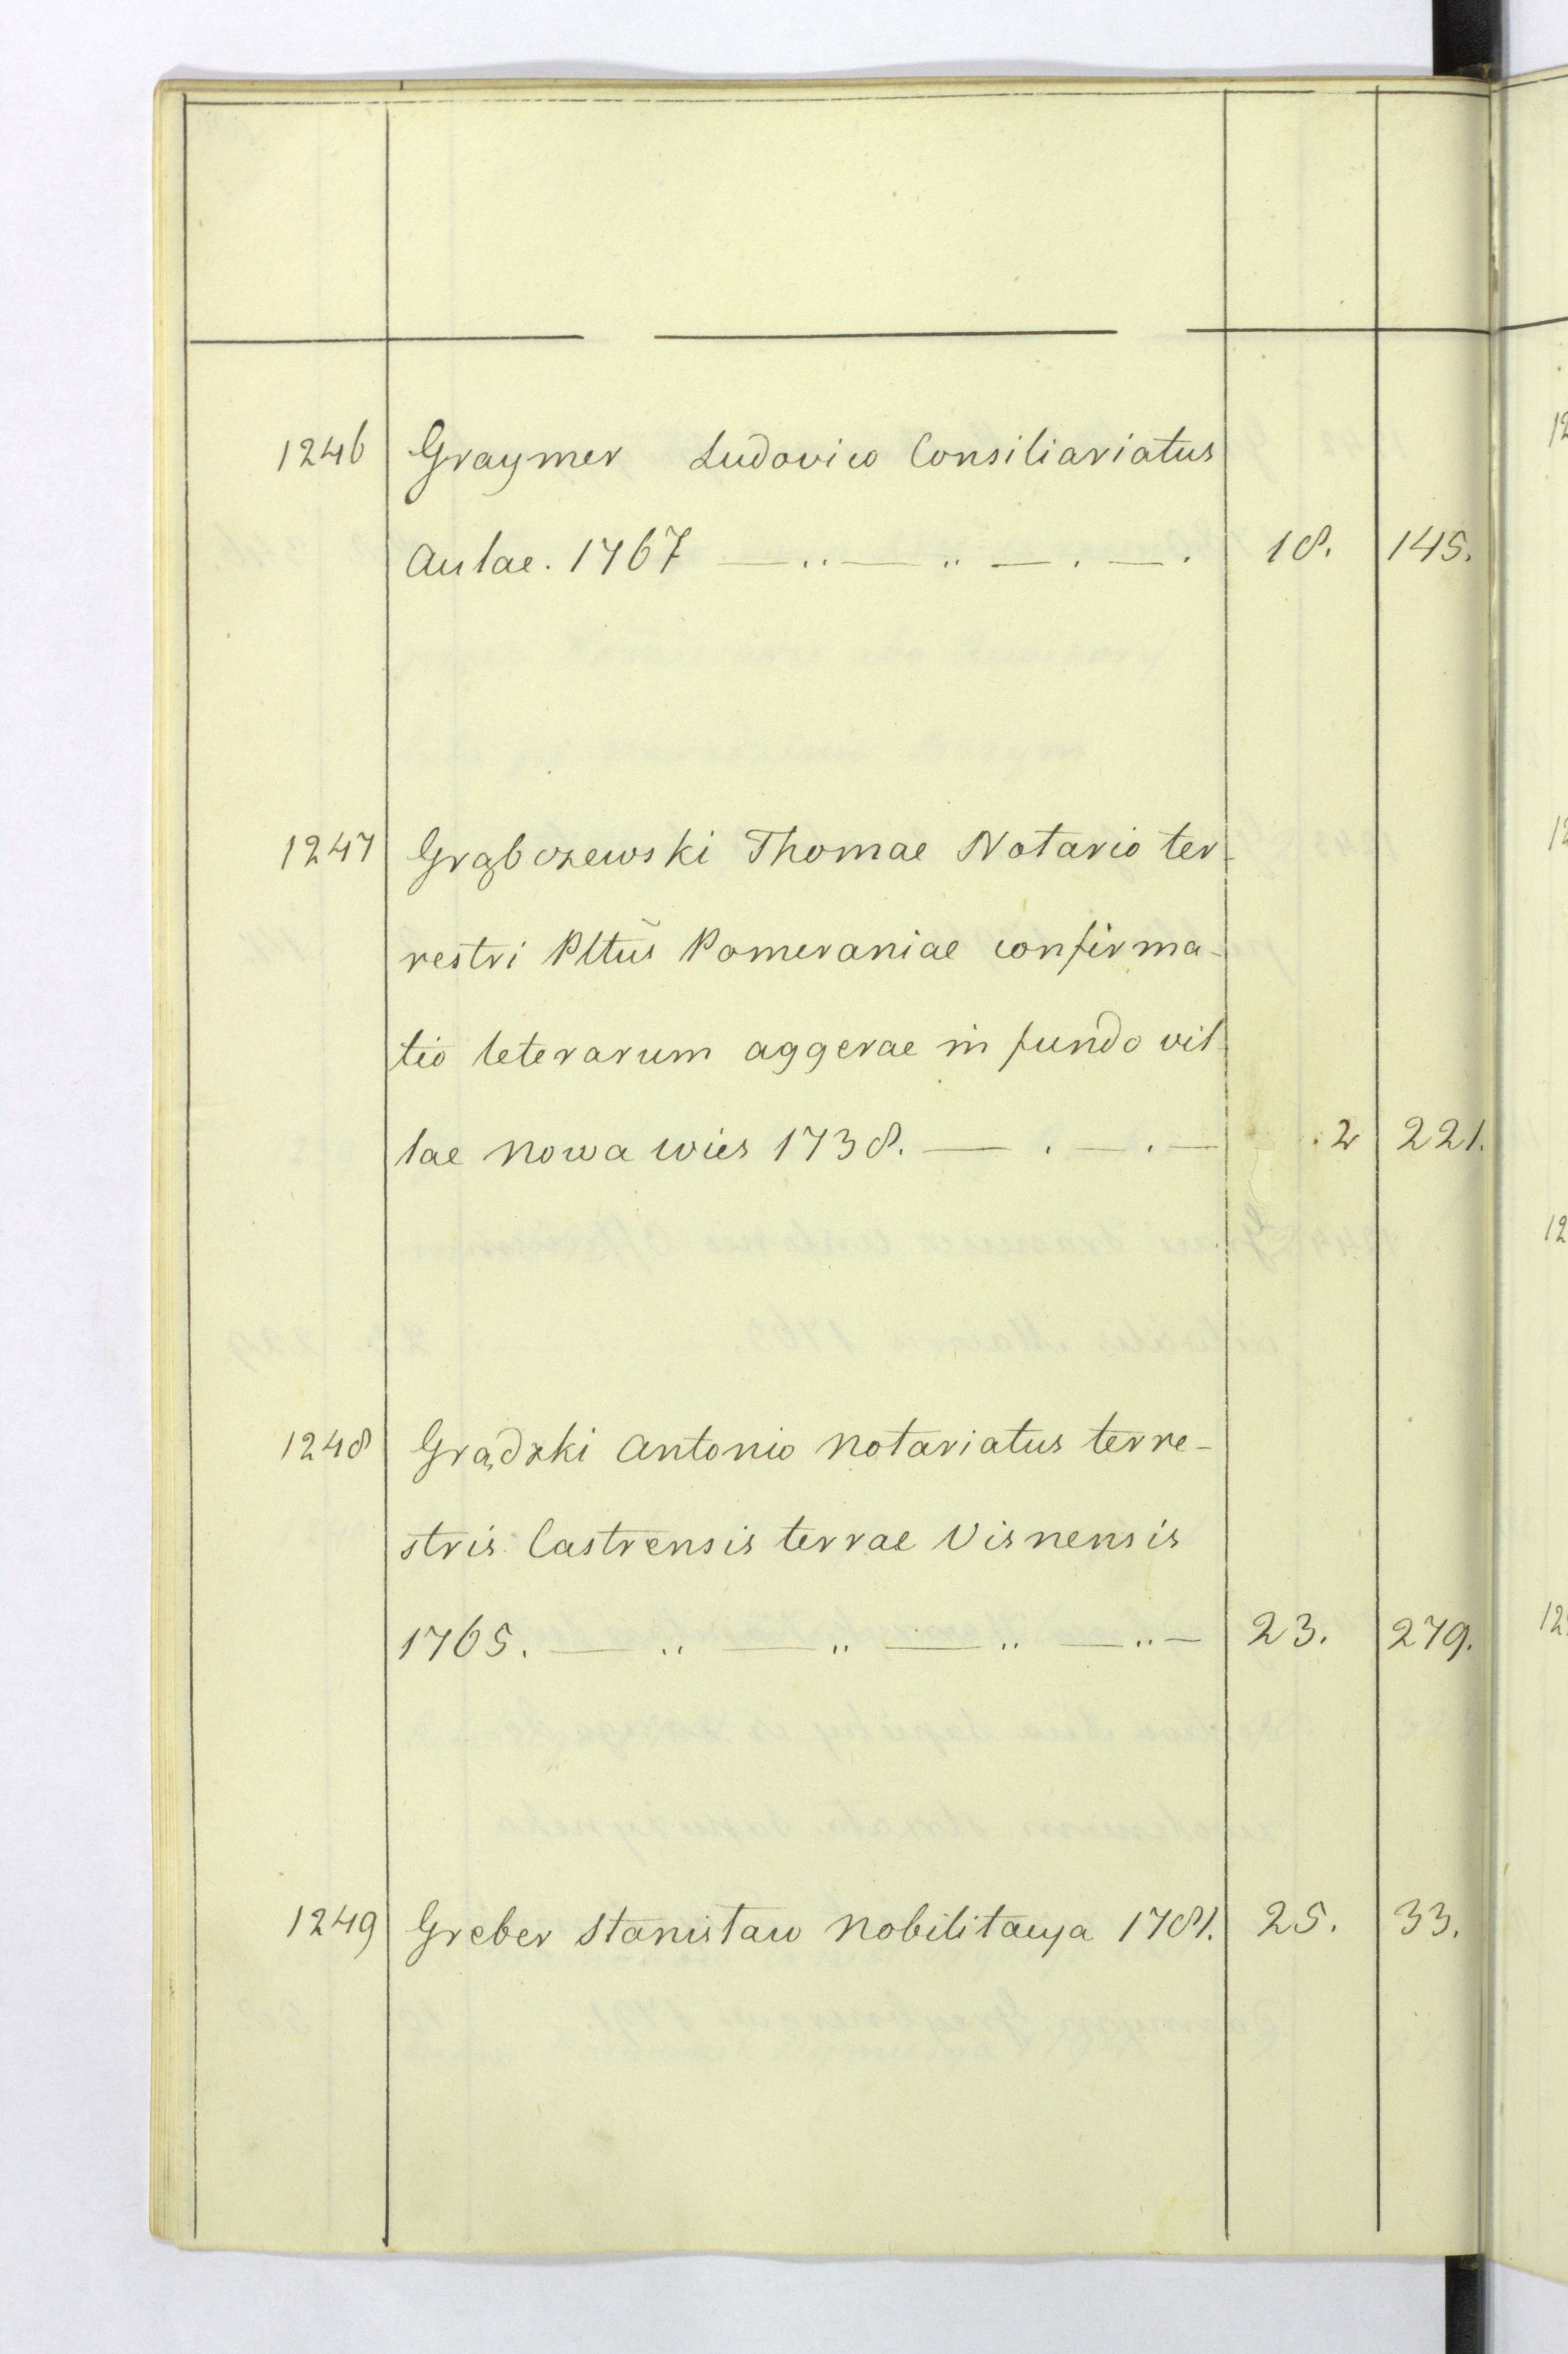 1246 Graymer Ludovico Consiliariatus
Aulae. 1767 — .. — .. — . — . 18. 145.
1247 Grąbczewski Thomae Notario ter-
restri Pltus Pomeraniae confirma-
tio leterarum aggerae in fundo vil-
lae Nowa wies 1738. — . — . — . 2 221.
1248 Grądzki Antonio Notariatus terre-
stris Castrensis terrae Visnensis
1765. — .. — .. — .. — .. — 23. 279.
1249 Greber Stanisław Nobilitacya 1781. 25. 33.